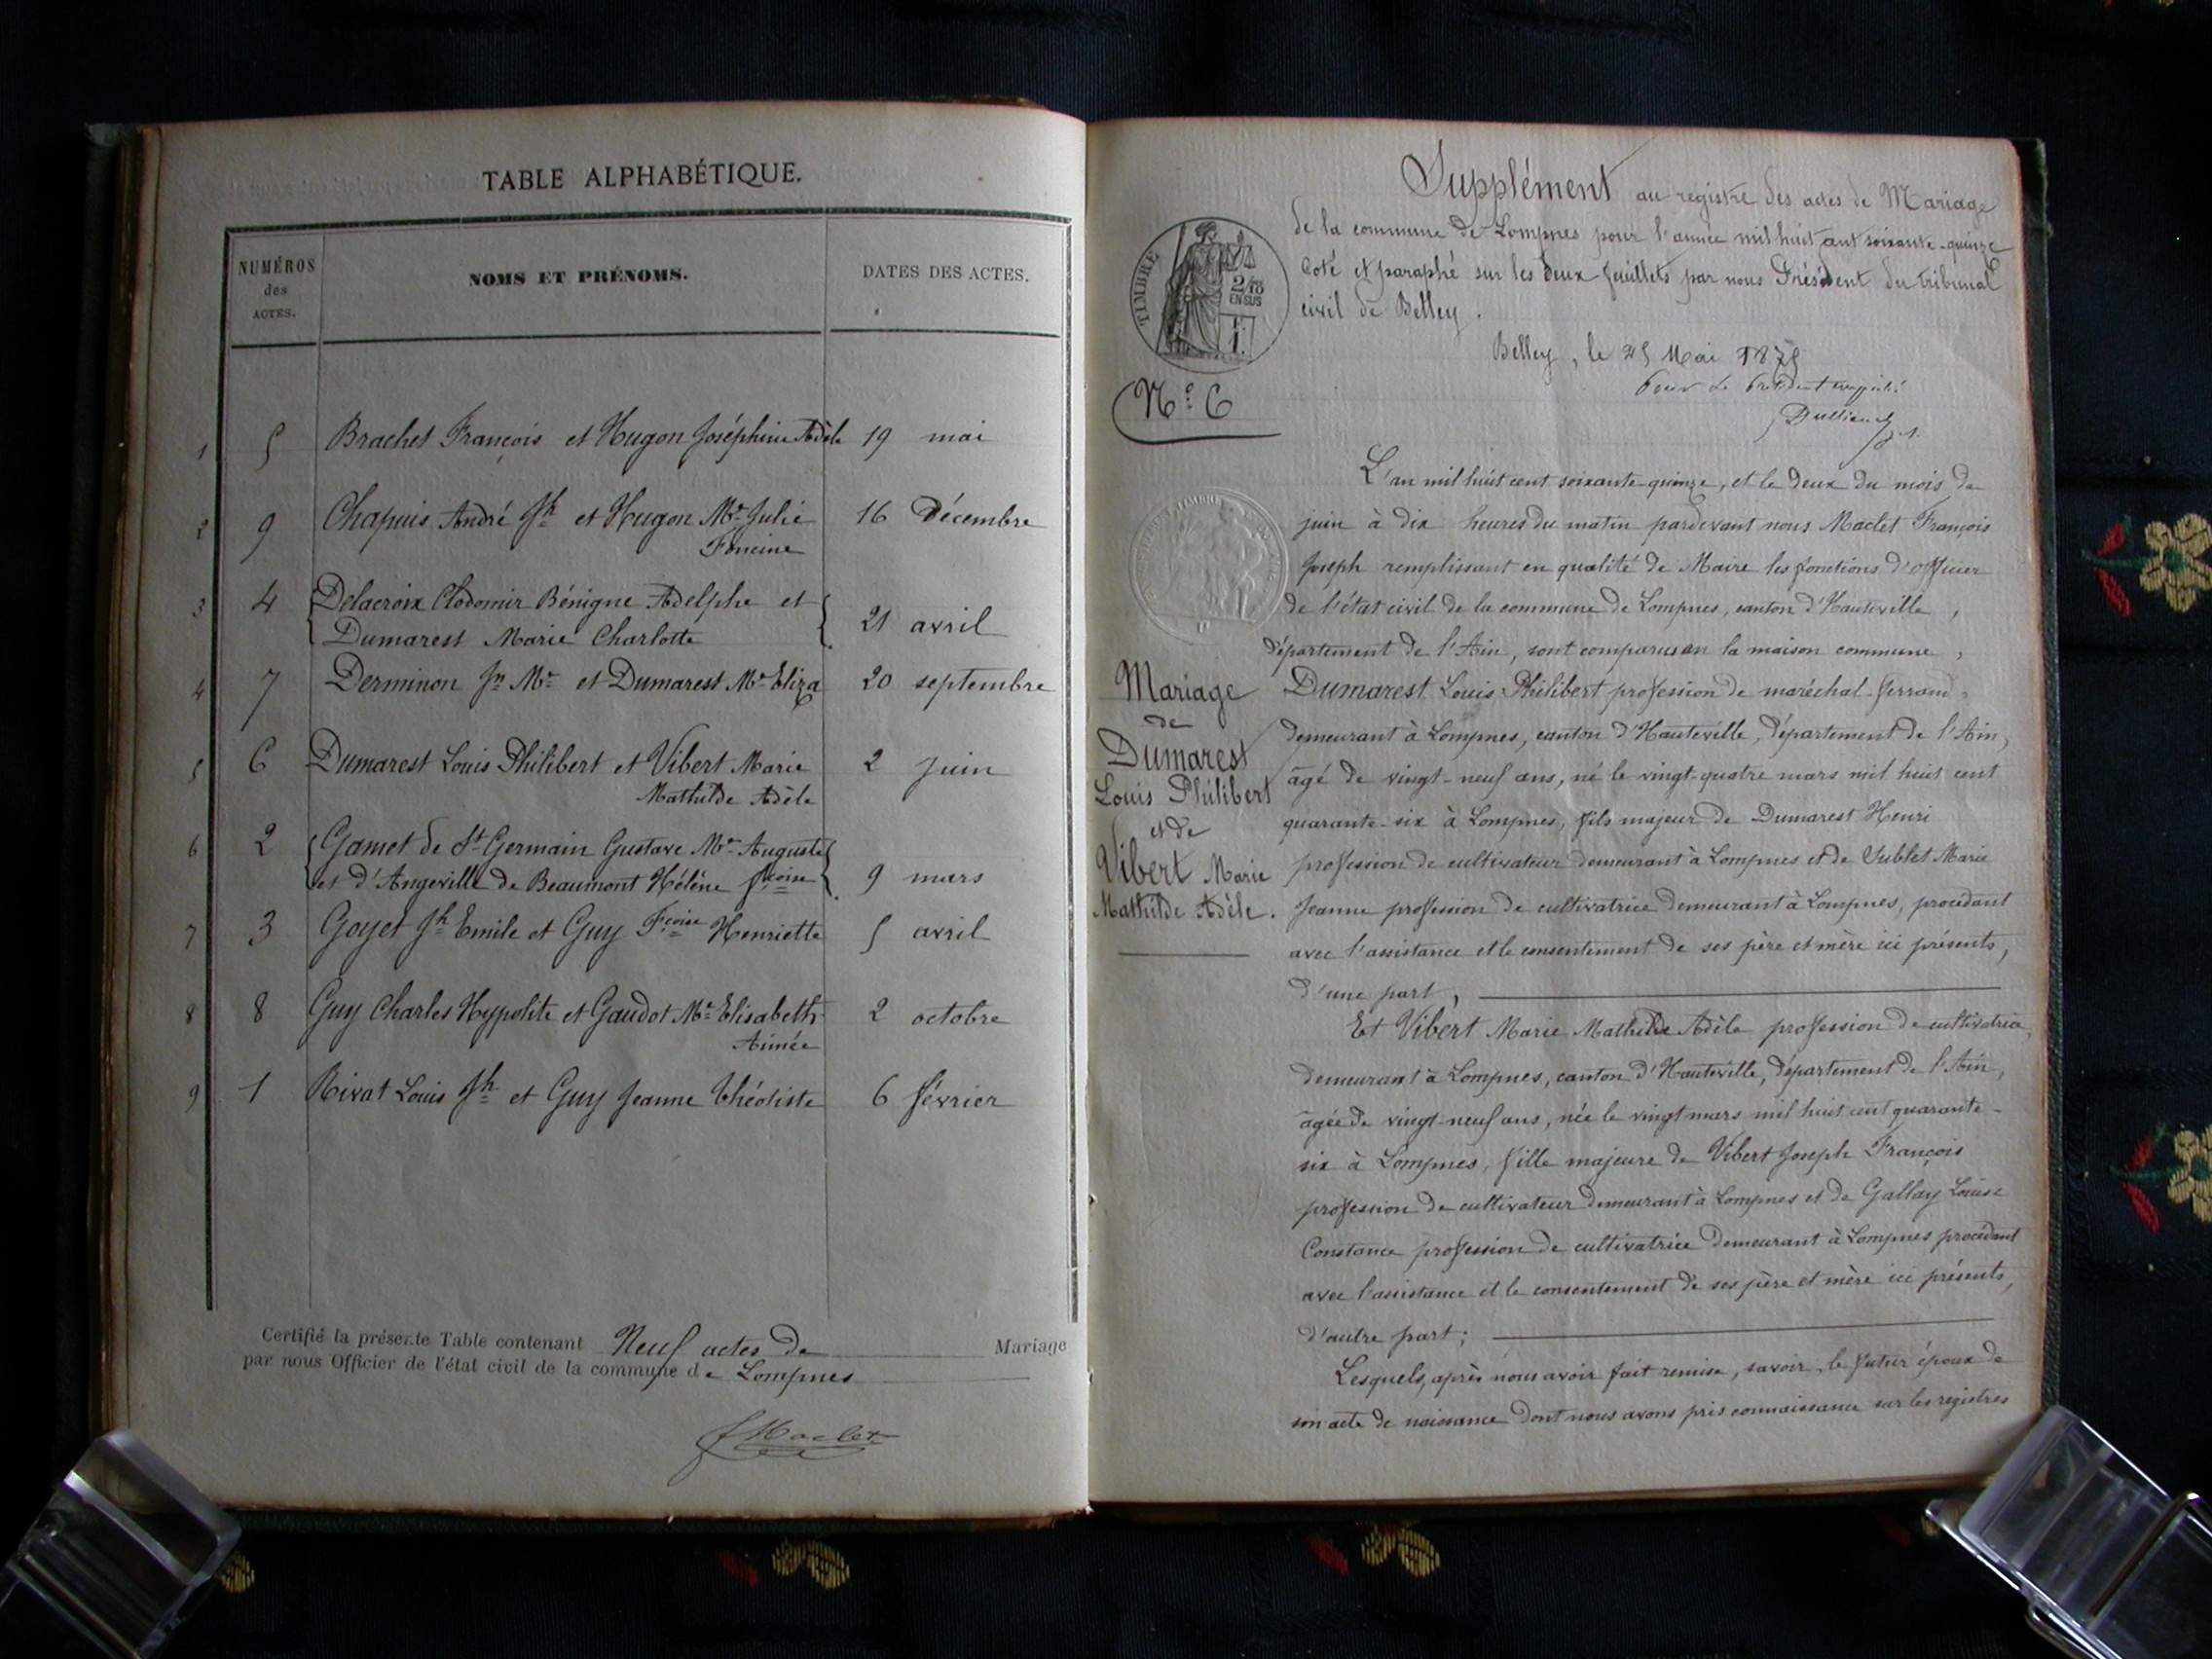 TABLE ALPHABÉTIQUE.
NUMÉROS
des
ACTES.
NOMS ET PRÉNOMS.
DATES DES ACTES.
1 5 Brachet François et Hugon Joséphine Adèle 19 mai
2 9 Chapuis André Jh et Hugon Me Julie 16 Décembre
Foncine
3 4 Delacroix Clodomir Bénigne Adelphe et
Dumarest Marie Charlotte 21 avril
4 7 Derminon Jn Me et Dumarest Me Eliza 20 septembre
5 6 Dumarest Louis Philibert et Vibert Marie 2 juin
Mathilde Adèle
6 2 Gamet de St Germain Gustave Me Auguste
et d'Angeville de Beaumont Hélène fçoise 9 mars
7 3 Goyet Jh Emile et Guy Fçoise Henriette 5 avril
8 8 Guy Charles Hypolite et Gaudot Me Elisabeth 2 octobre
Aimée
9 1 Rivat Louis Jh et Guy Jeanne Théotiste 6 février
Certifié la présente Table contenant Neuf actes de Mariage
par nous Officier de l'état civil de la commune de Lompnes
Maclet
Supplément au registre des actes de Mariage
de la commune de Lompnes pour l'année mil huit cent soixante-quinze
Coté et paraphé sur les deux feuillets par nous Président du tribunal
civil de Belley.
TIMBRE
2/10
EN SUS
1
Belley, le 25 Mai 1875
Pour le Président empêché
No 6
L'an mil huit cent soixante-quinze, et le deux du mois de
juin à dix heures du matin pardevant nous Maclet François
Joseph remplissant en qualité de Maire les fonctions d'officier
de l'état civil de la commune de Lompnes, canton d'Hauteville,
département de l'Ain, sont comparus en la maison commune,
Mariage
de
Dumarest
Louis Philibert
et de
Vibert Marie
Mathilde Adèle.
Dumarest Louis Philibert profession de maréchal-ferrand,
demeurant à Lompnes, canton d'Hauteville, département de l'Ain,
âgé de vingt-neuf ans, né le vingt-quatre mars mil huit cent
quarante-six à Lompnes, fils majeur de Dumarest Henri
profession de cultivateur demeurant à Lompnes et de Sublet Marie
Jeanne profession de cultivatrice demeurant à Lompnes, procédant
avec l'assistance et le consentement de ses père et mère ici présents,
d'une part,
Et Vibert Marie Mathilde Adèle profession de cultivatrice,
demeurant à Lompnes, canton d'Hauteville, département de l'Ain,
âgée de vingt-neuf ans, née le vingt mars mil huit cent quarante-
six à Lompnes, fille majeure de Vibert Joseph François
profession de cultivateur demeurant à Lompnes et de Gallay Louise
Constance profession de cultivatrice demeurant à Lompnes procédant
avec l'assistance et le consentement de ses père et mère ici présents,
d'autre part;
Lesquels, après nous avoir fait remise, savoir, le futur époux de
son acte de naissance dont nous avons pris connaissance sur les registres